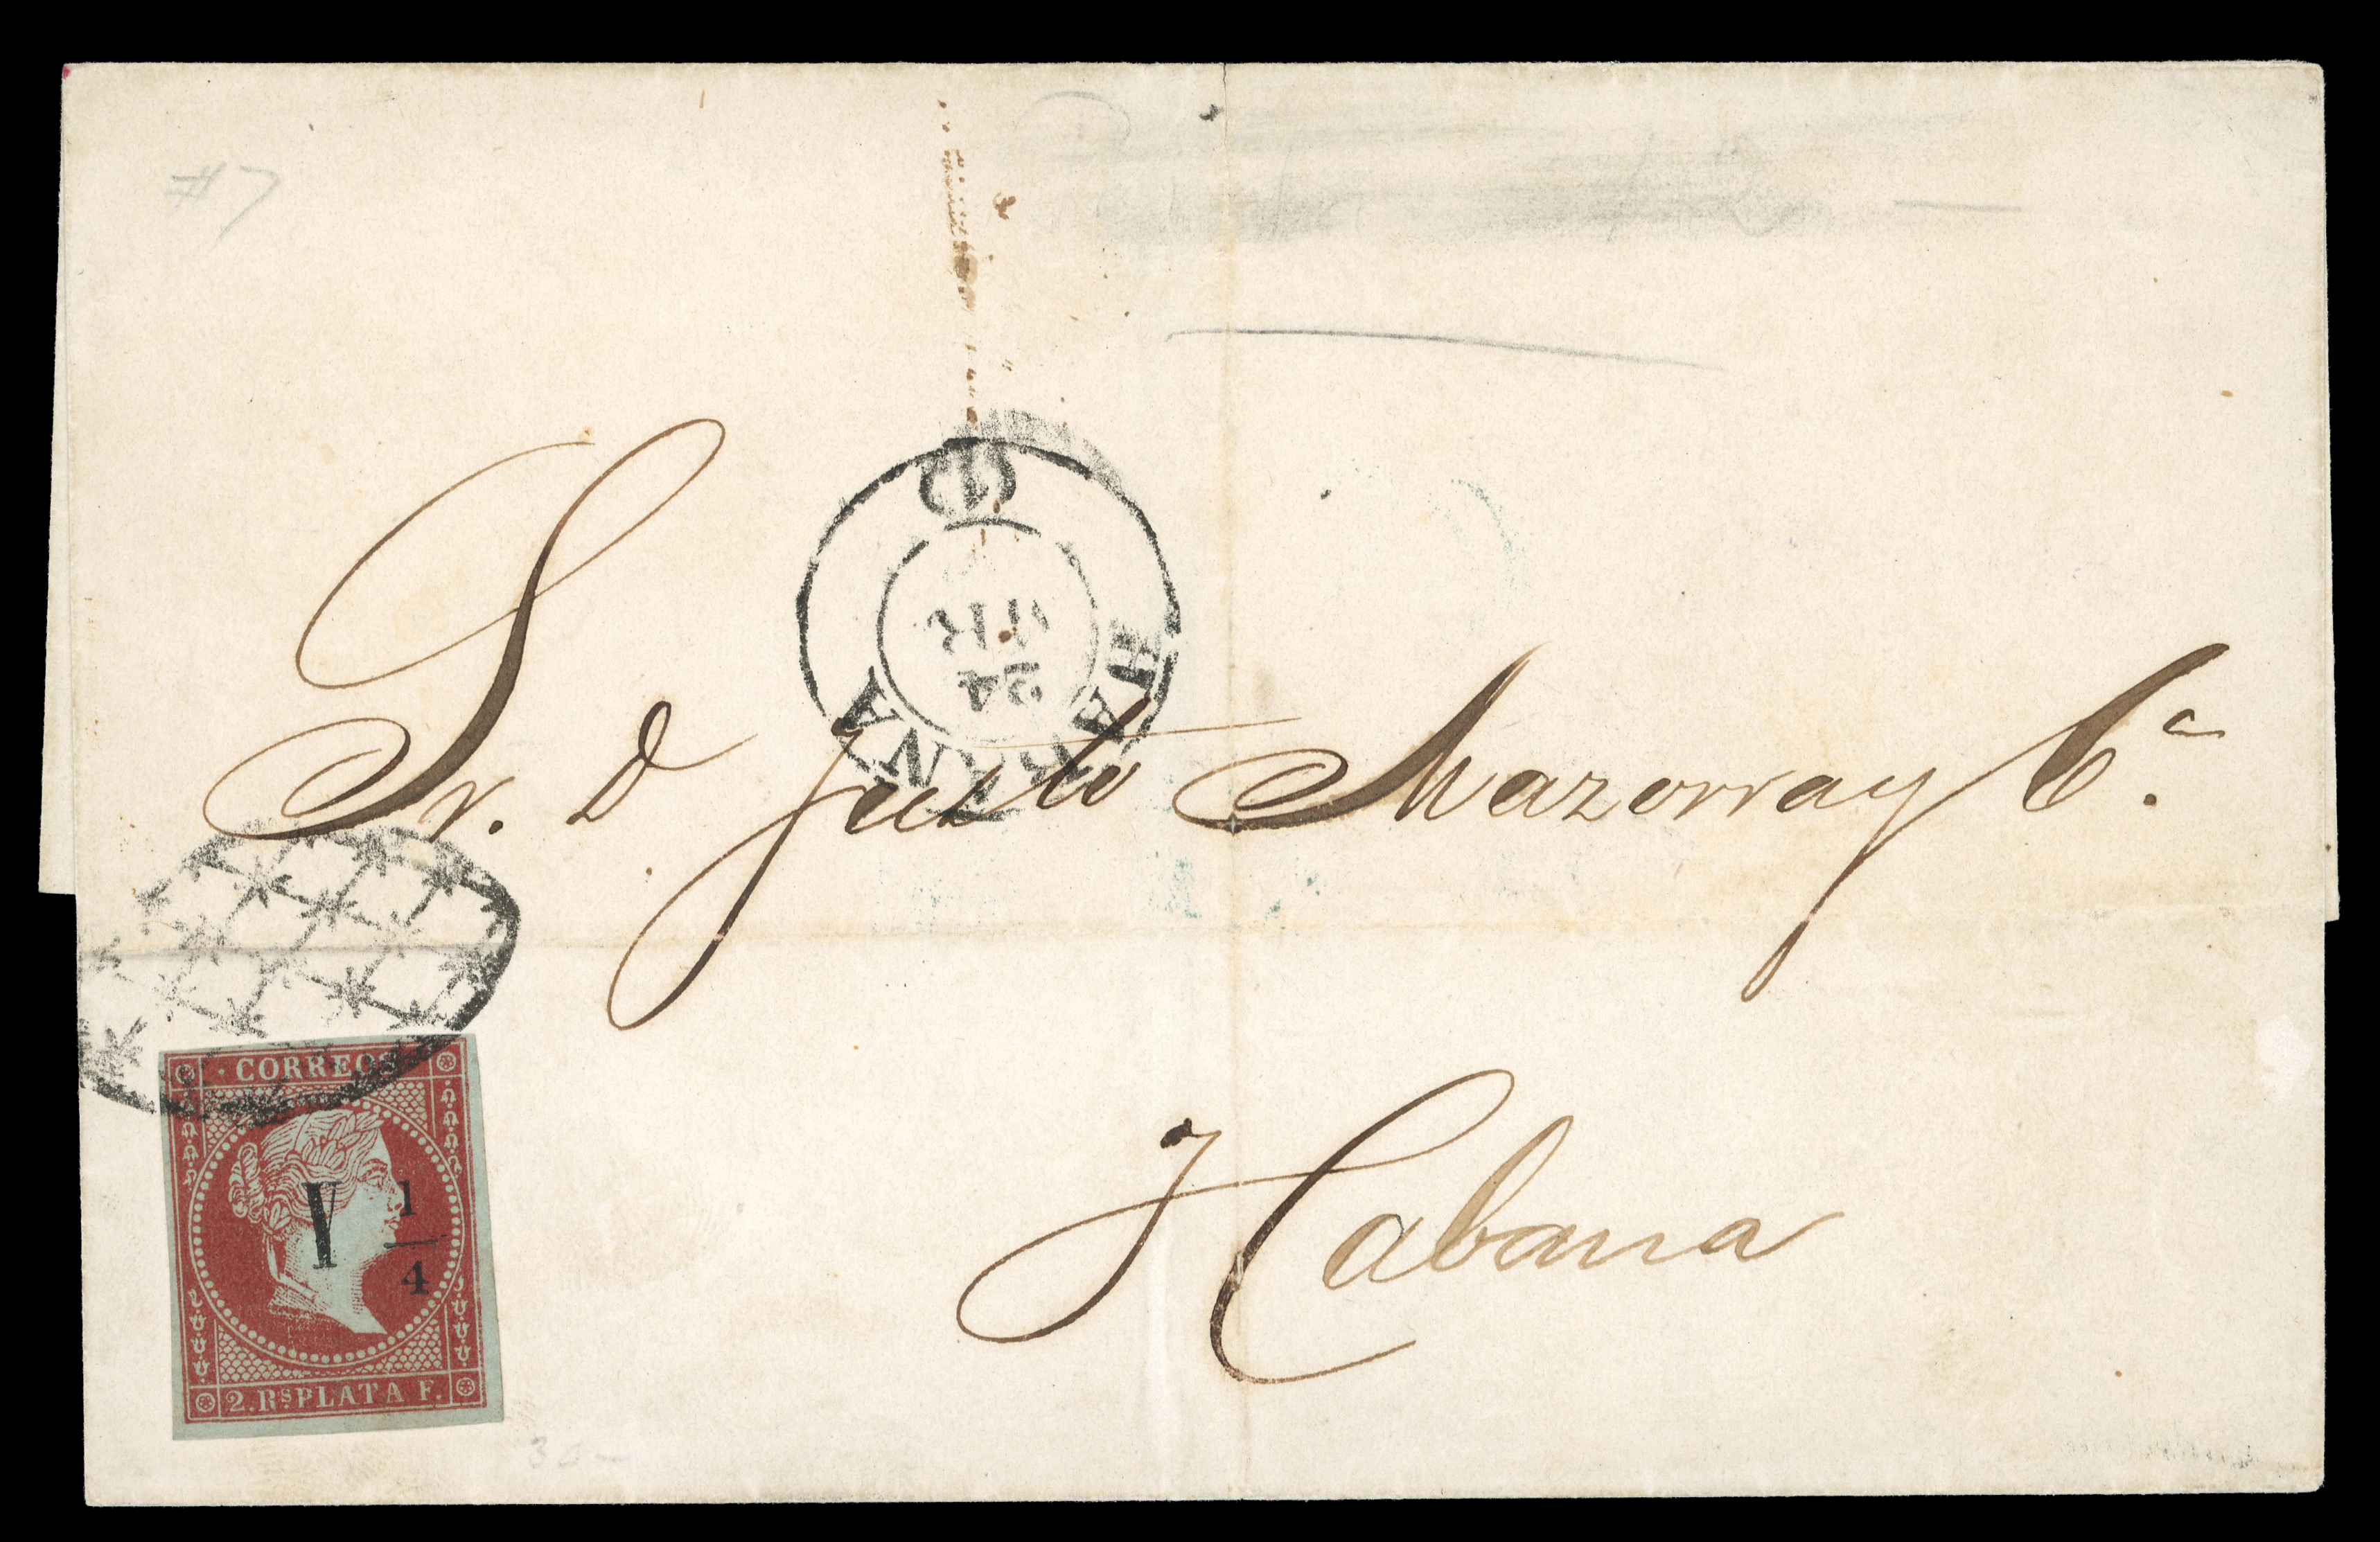 #7
HABANA
24
Sr. D Justo Mazorra y Cª.
Habana
CORREOS
Y 1/4
2. Rs PLATA F.
30-